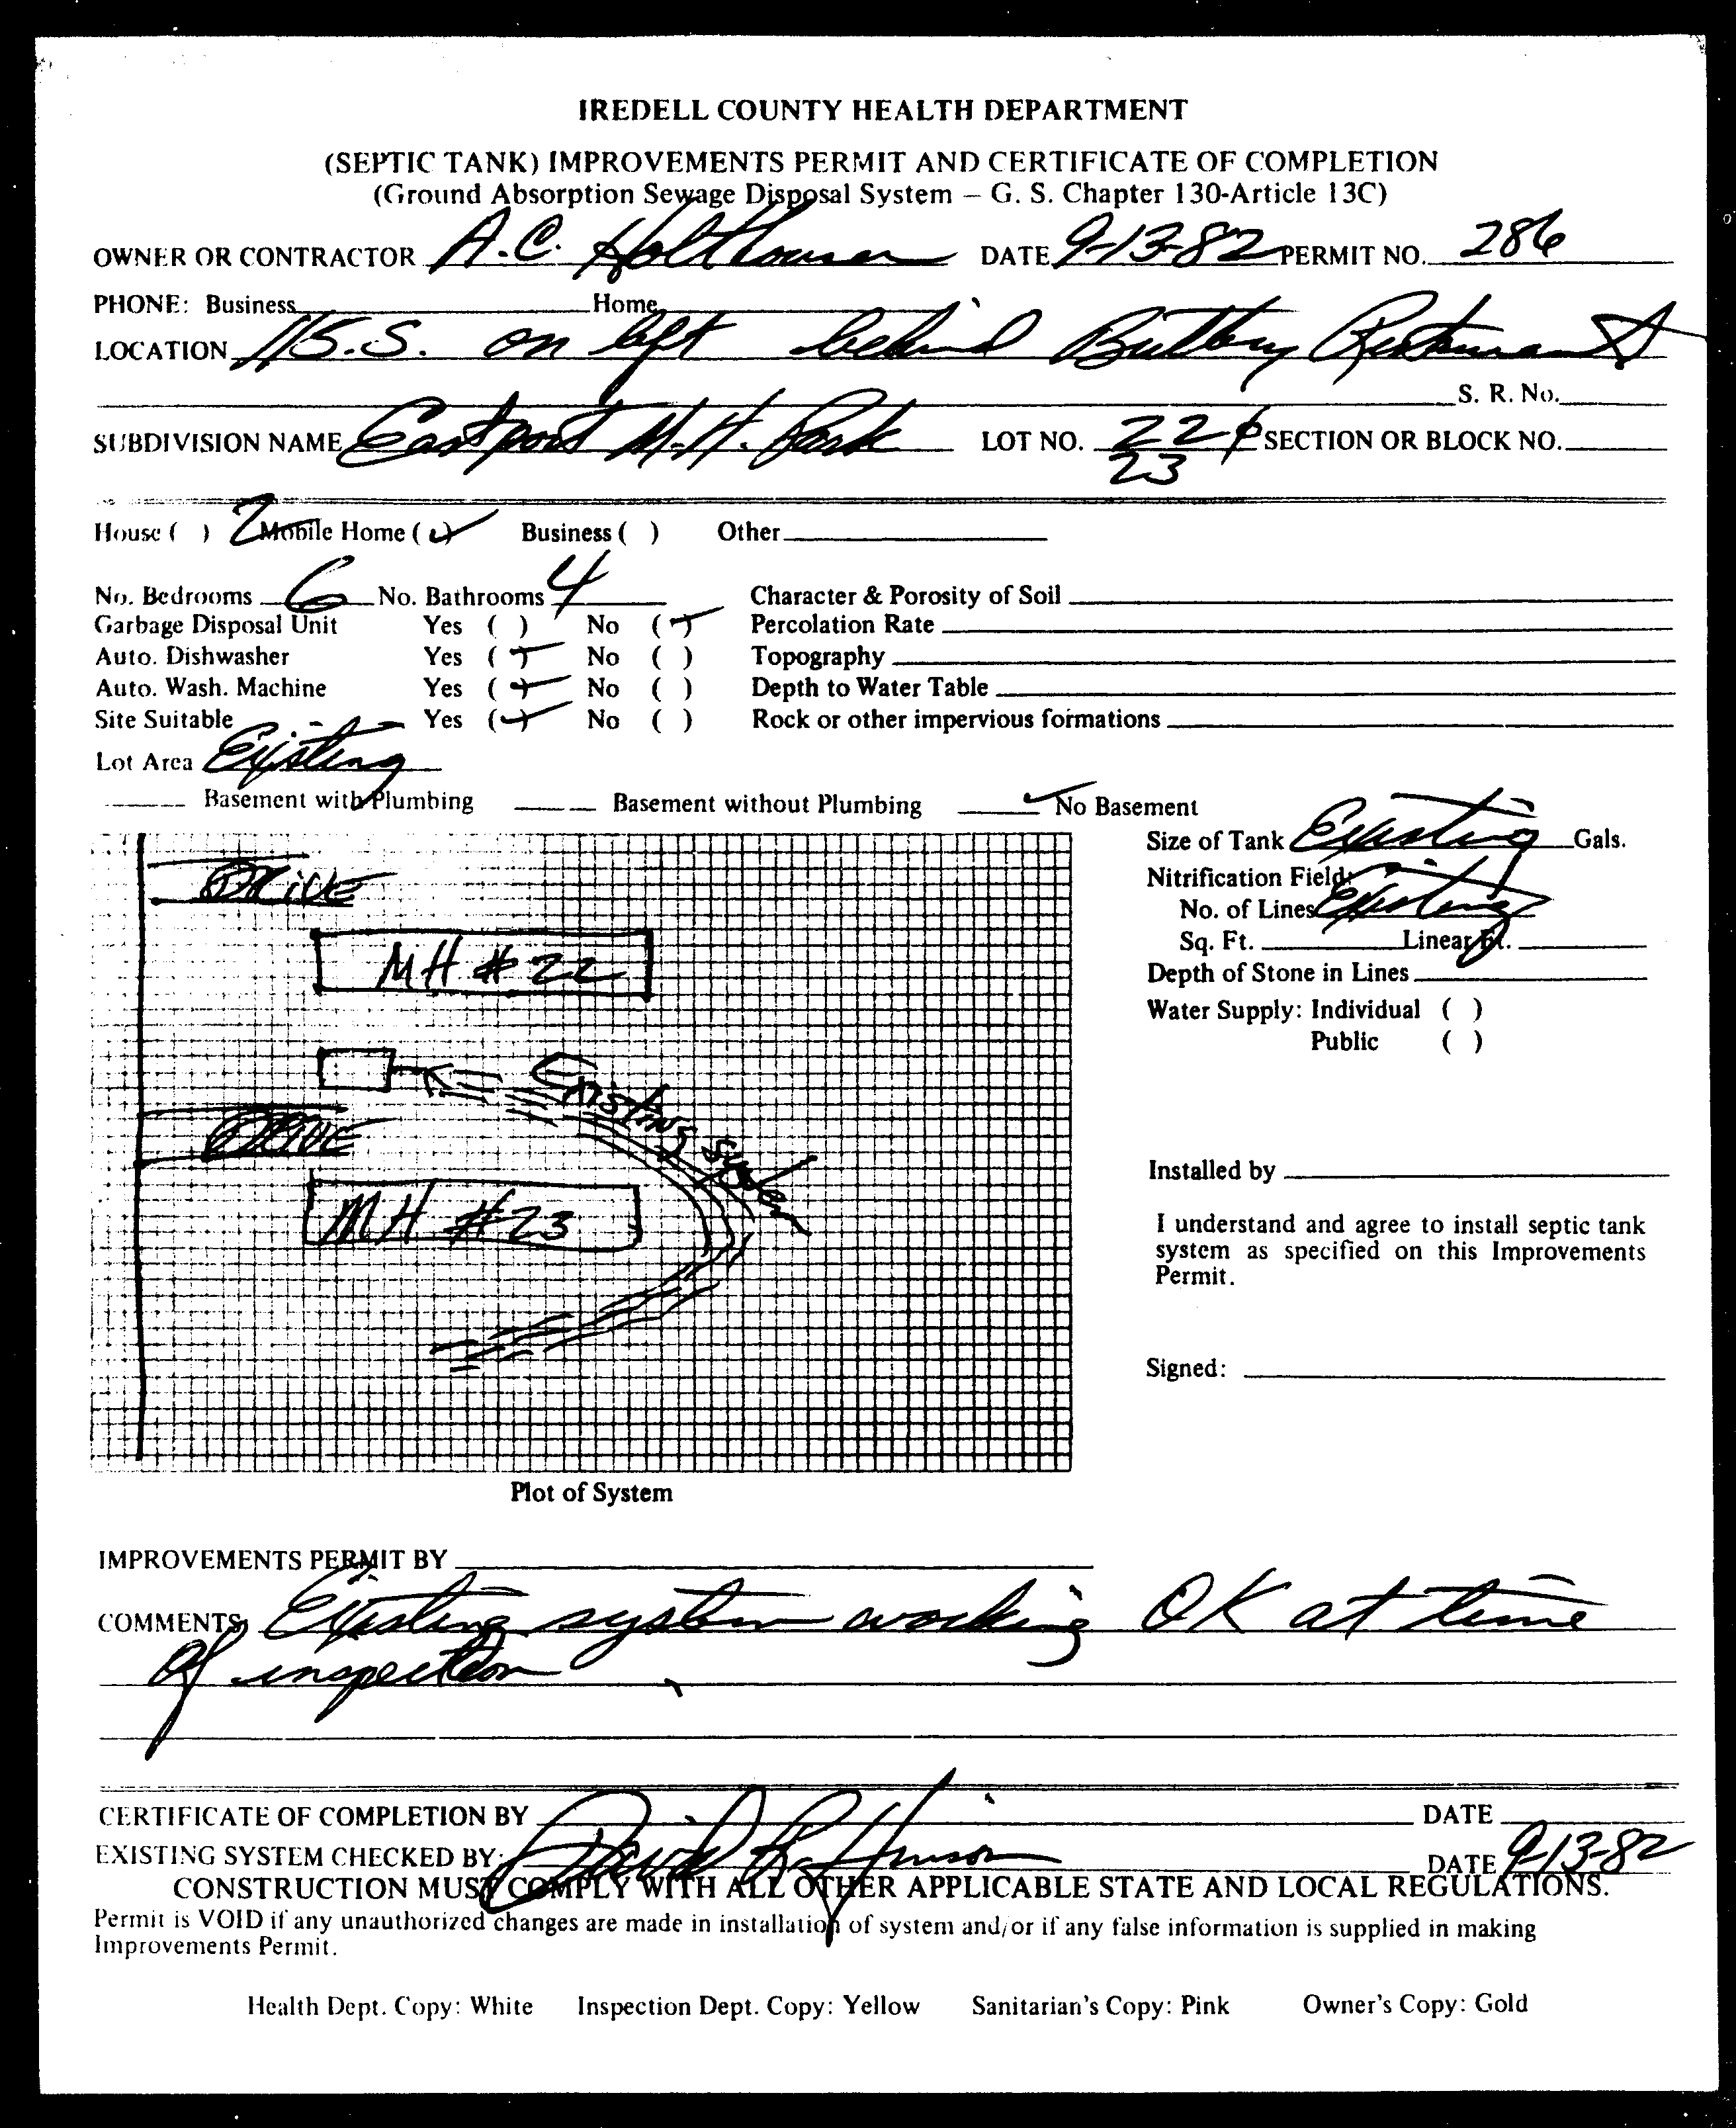 IREDELL COUNTY HEALTH DEPARTMENT
(SEPTIC TANK) IMPROVEMENTS PERMIT AND CERTIFICATE OF COMPLETION
(Ground Absorption Sewage Disposal System – G. S. Chapter 130-Article 13C)
OWNER OR CONTRACTOR A.C. Holthouser DATE 9-13-82 PERMIT NO. 286
PHONE: Business Home
LOCATION 115.S. on left behind Buttery Restaurant
S. R. No.
SUBDIVISION NAME Eastport M.H. Park LOT NO. 22 & SECTION OR BLOCK NO.
23
House ( ) 2 Mobile Home (✓) Business ( ) Other
No. Bedrooms 6 No. Bathrooms 4 Character & Porosity of Soil
Garbage Disposal Unit Yes ( ) No (✓) Percolation Rate
Auto. Dishwasher Yes (✓) No ( ) Topography
Auto. Wash. Machine Yes (✓) No ( ) Depth to Water Table
Site Suitable Yes (✓) No ( ) Rock or other impervious formations
Lot Area Existing
Basement with Plumbing Basement without Plumbing ✓ No Basement
Size of Tank Existing Gals.
Nitrification Field:
No. of Lines Existing
Sq. Ft. Linear Ft.
Depth of Stone in Lines
Water Supply: Individual ( )
Public ( )
DRIVE
MH # 22
Existing System
DRIVE
MH # 23
Installed by
I understand and agree to install septic tank
system as specified on this Improvements
Permit.
Signed:
Plot of System
IMPROVEMENTS PERMIT BY
COMMENTS Existing system working OK at time
of inspection
CERTIFICATE OF COMPLETION BY DATE
EXISTING SYSTEM CHECKED BY: David R. Hinson DATE 9-13-82
CONSTRUCTION MUST COMPLY WITH ALL OTHER APPLICABLE STATE AND LOCAL REGULATIONS.
Permit is VOID if any unauthorized changes are made in installation of system and/or if any false information is supplied in making
Improvements Permit.
Health Dept. Copy: White Inspection Dept. Copy: Yellow Sanitarian's Copy: Pink Owner's Copy: Gold